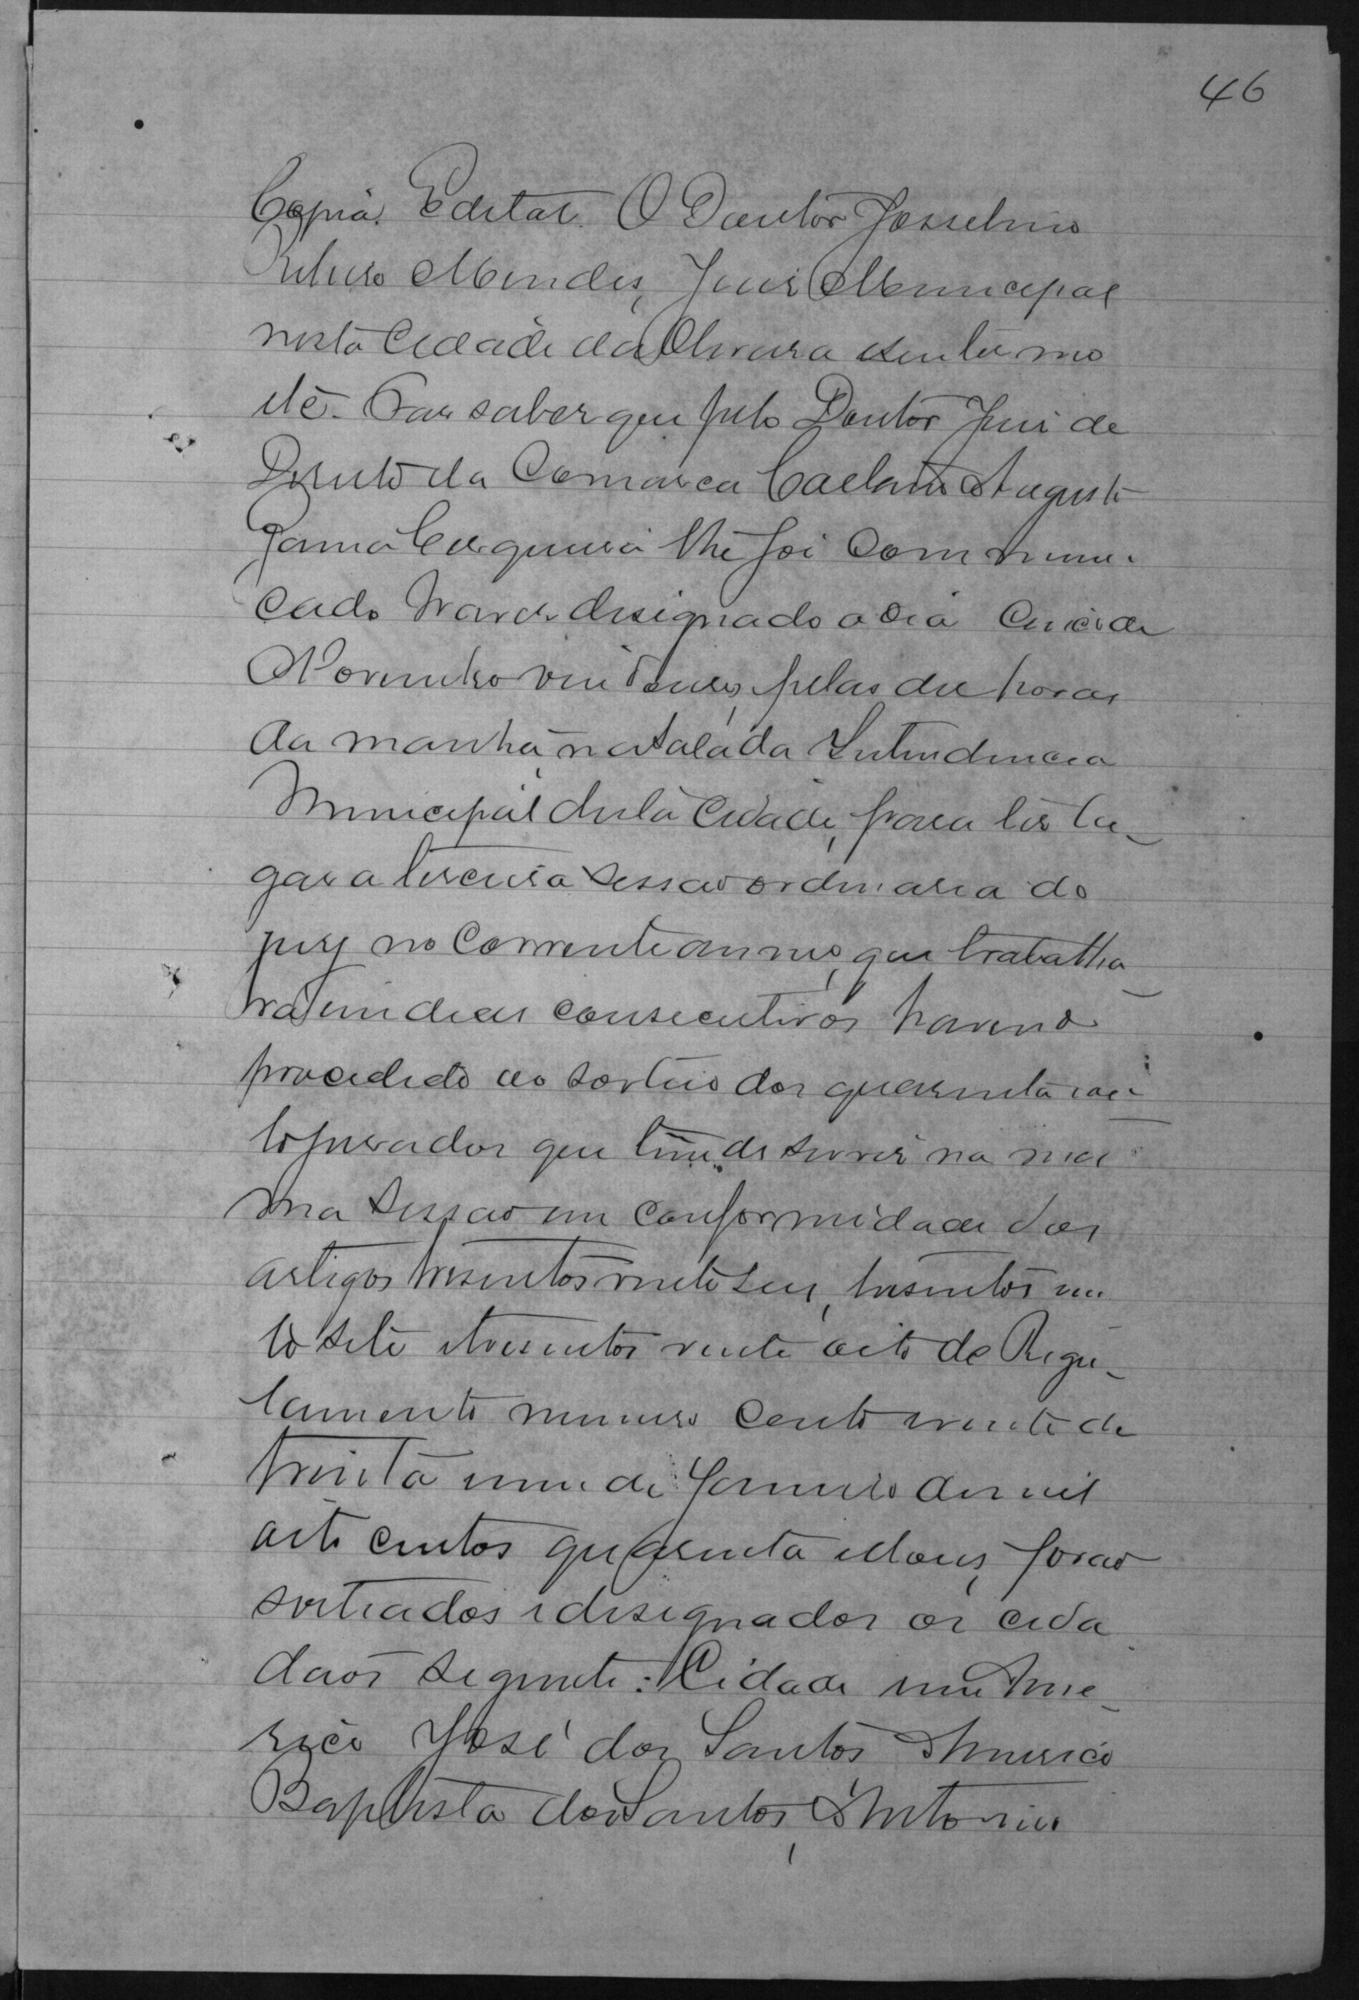 46
Copia. Edital. O Doutor Josselino
Mendes, Juiz Municipal
nesta Cidade da Oliveira e seu termo
etc. Faz saber que pelo Doutor Juiz de
Direito da Comarca Caetano Augusto
Gama Cerqueira lhe foi communi-
cado haver designado o dia cinco de
Novembro vindouro, pelas dez horas
da manhã, na sala da Intendencia
Municipal desta Cidade, para ter lu-
gar a terceira sessao ordinaria do
jury no corrente anno, que trabalha-
rá em dias consecutivos havendo
procedido ao sorteio dos quarenta e oi-
to jurados que tem de servir na mes
ma sessao em conformidade dos
artigos tresentos vinte seis, tresentos vin
te sete e tresentos vinte oito do Regu-
lamento numero cento e vinte de
trinta e um de Janeiro de mil
oito centos quarenta e dous, forao
sorteados e designados os cida
daos seguinte: Cidade um Ame-
rico José dos Santos, Americo
Baptista dos Santos, Antonio